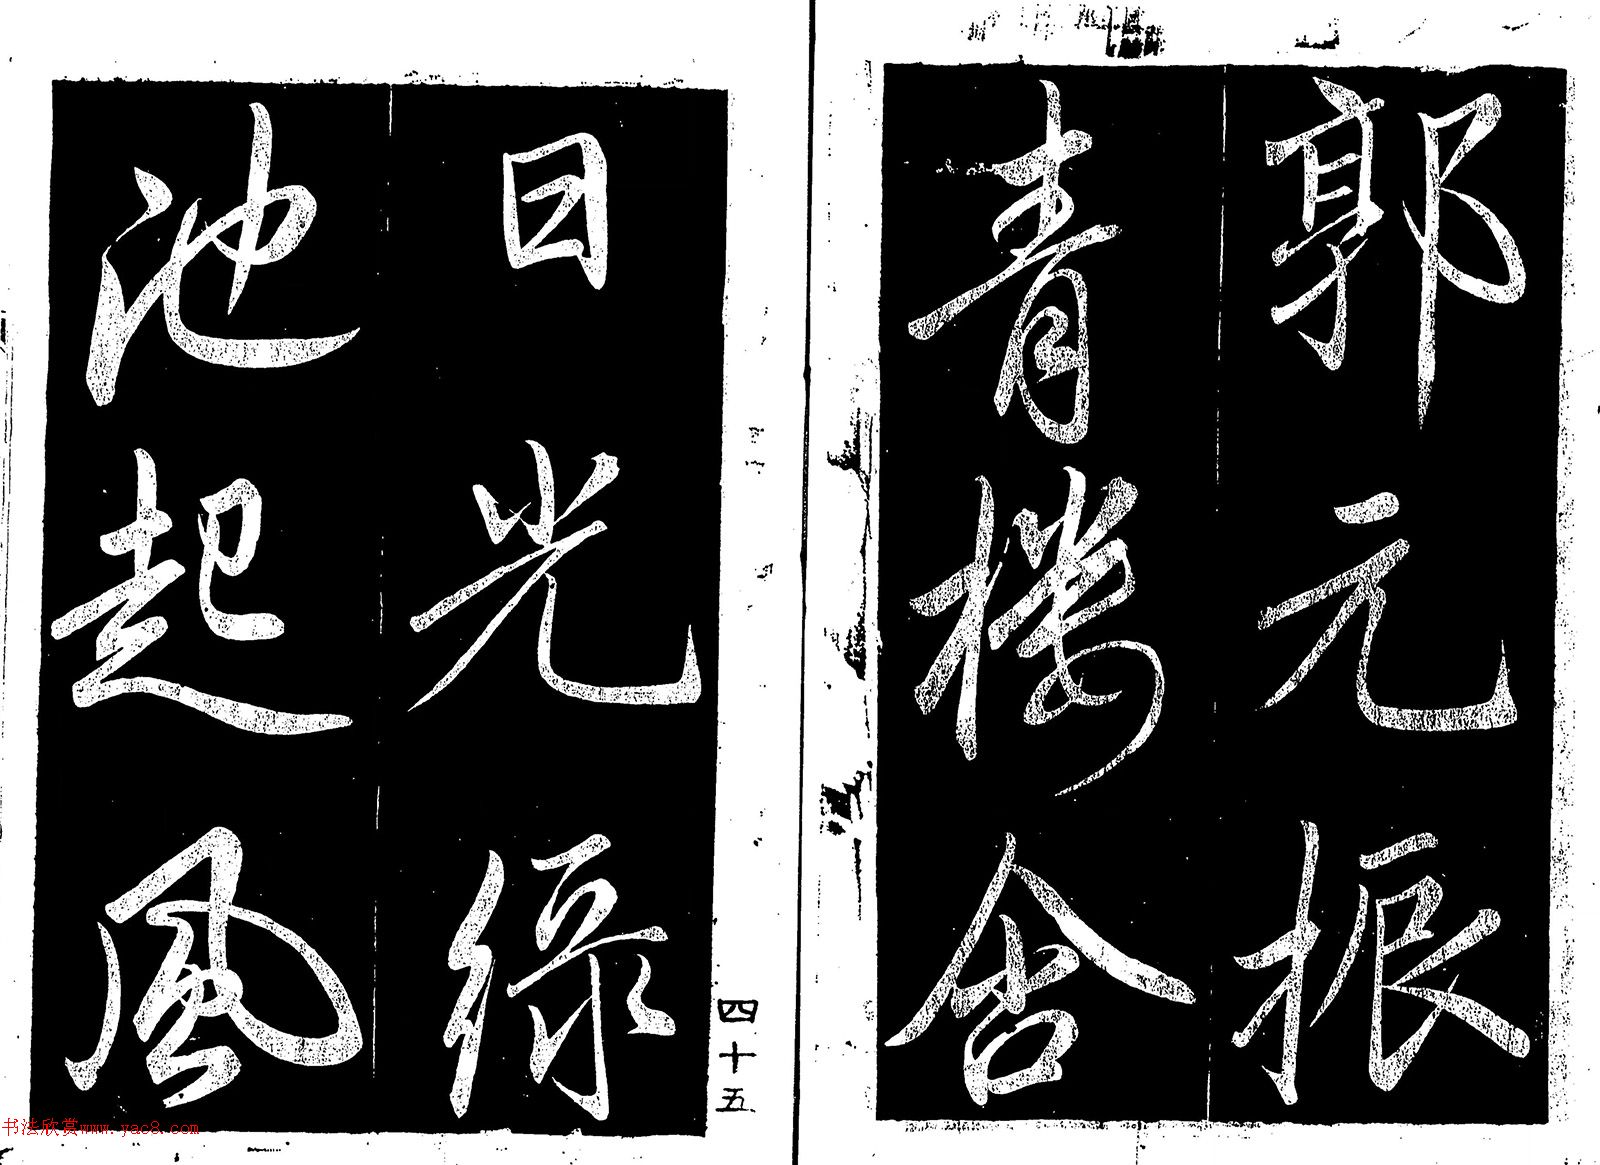 郭元振
青楼含
日光绿
池起風
四十五
书法欣赏www.yac8.com